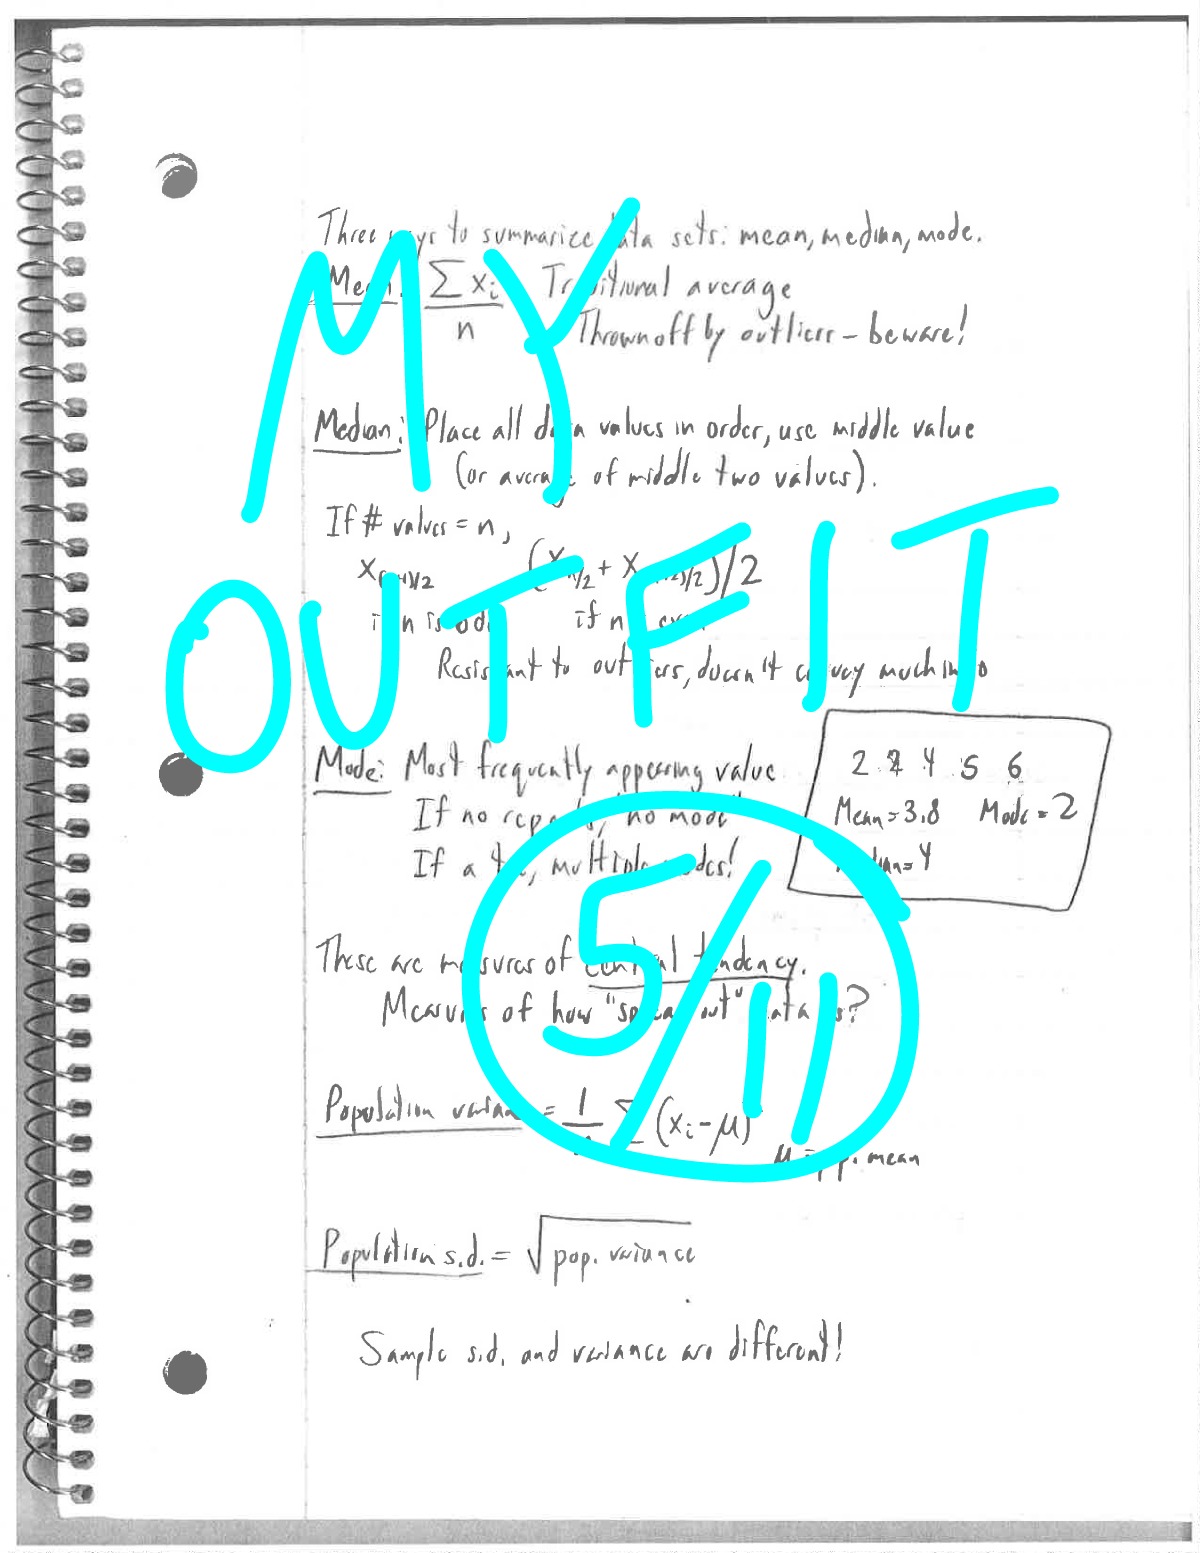 Three ways to summarize data sets: mean, median, mode.
Mean: ∑ xᵢ / n Traditional average
Thrown off by outliers – beware!
Median: Place all data values in order, use middle value
(or average of middle two values).
If # values = n,
x(n+1)/2 (xn/2 + x(n+2)/2)/2
if n is odd if n even
Resistant to outliers, doesn't convey much info
Mode: Most frequently appearing value
If no repeats, no mode
If a tie, multiple modes!
2 2 4 5 6
Mean = 3.8 Mode = 2
Median = 4
These are measures of central tendency.
Measures of how "spread out" data is?
Population variance = 1/n ∑ (xᵢ - μ)
μ = pop. mean
Population s.d. = √pop. variance
Sample s.d. and variance are different!
MY
OUTFIT
5/11